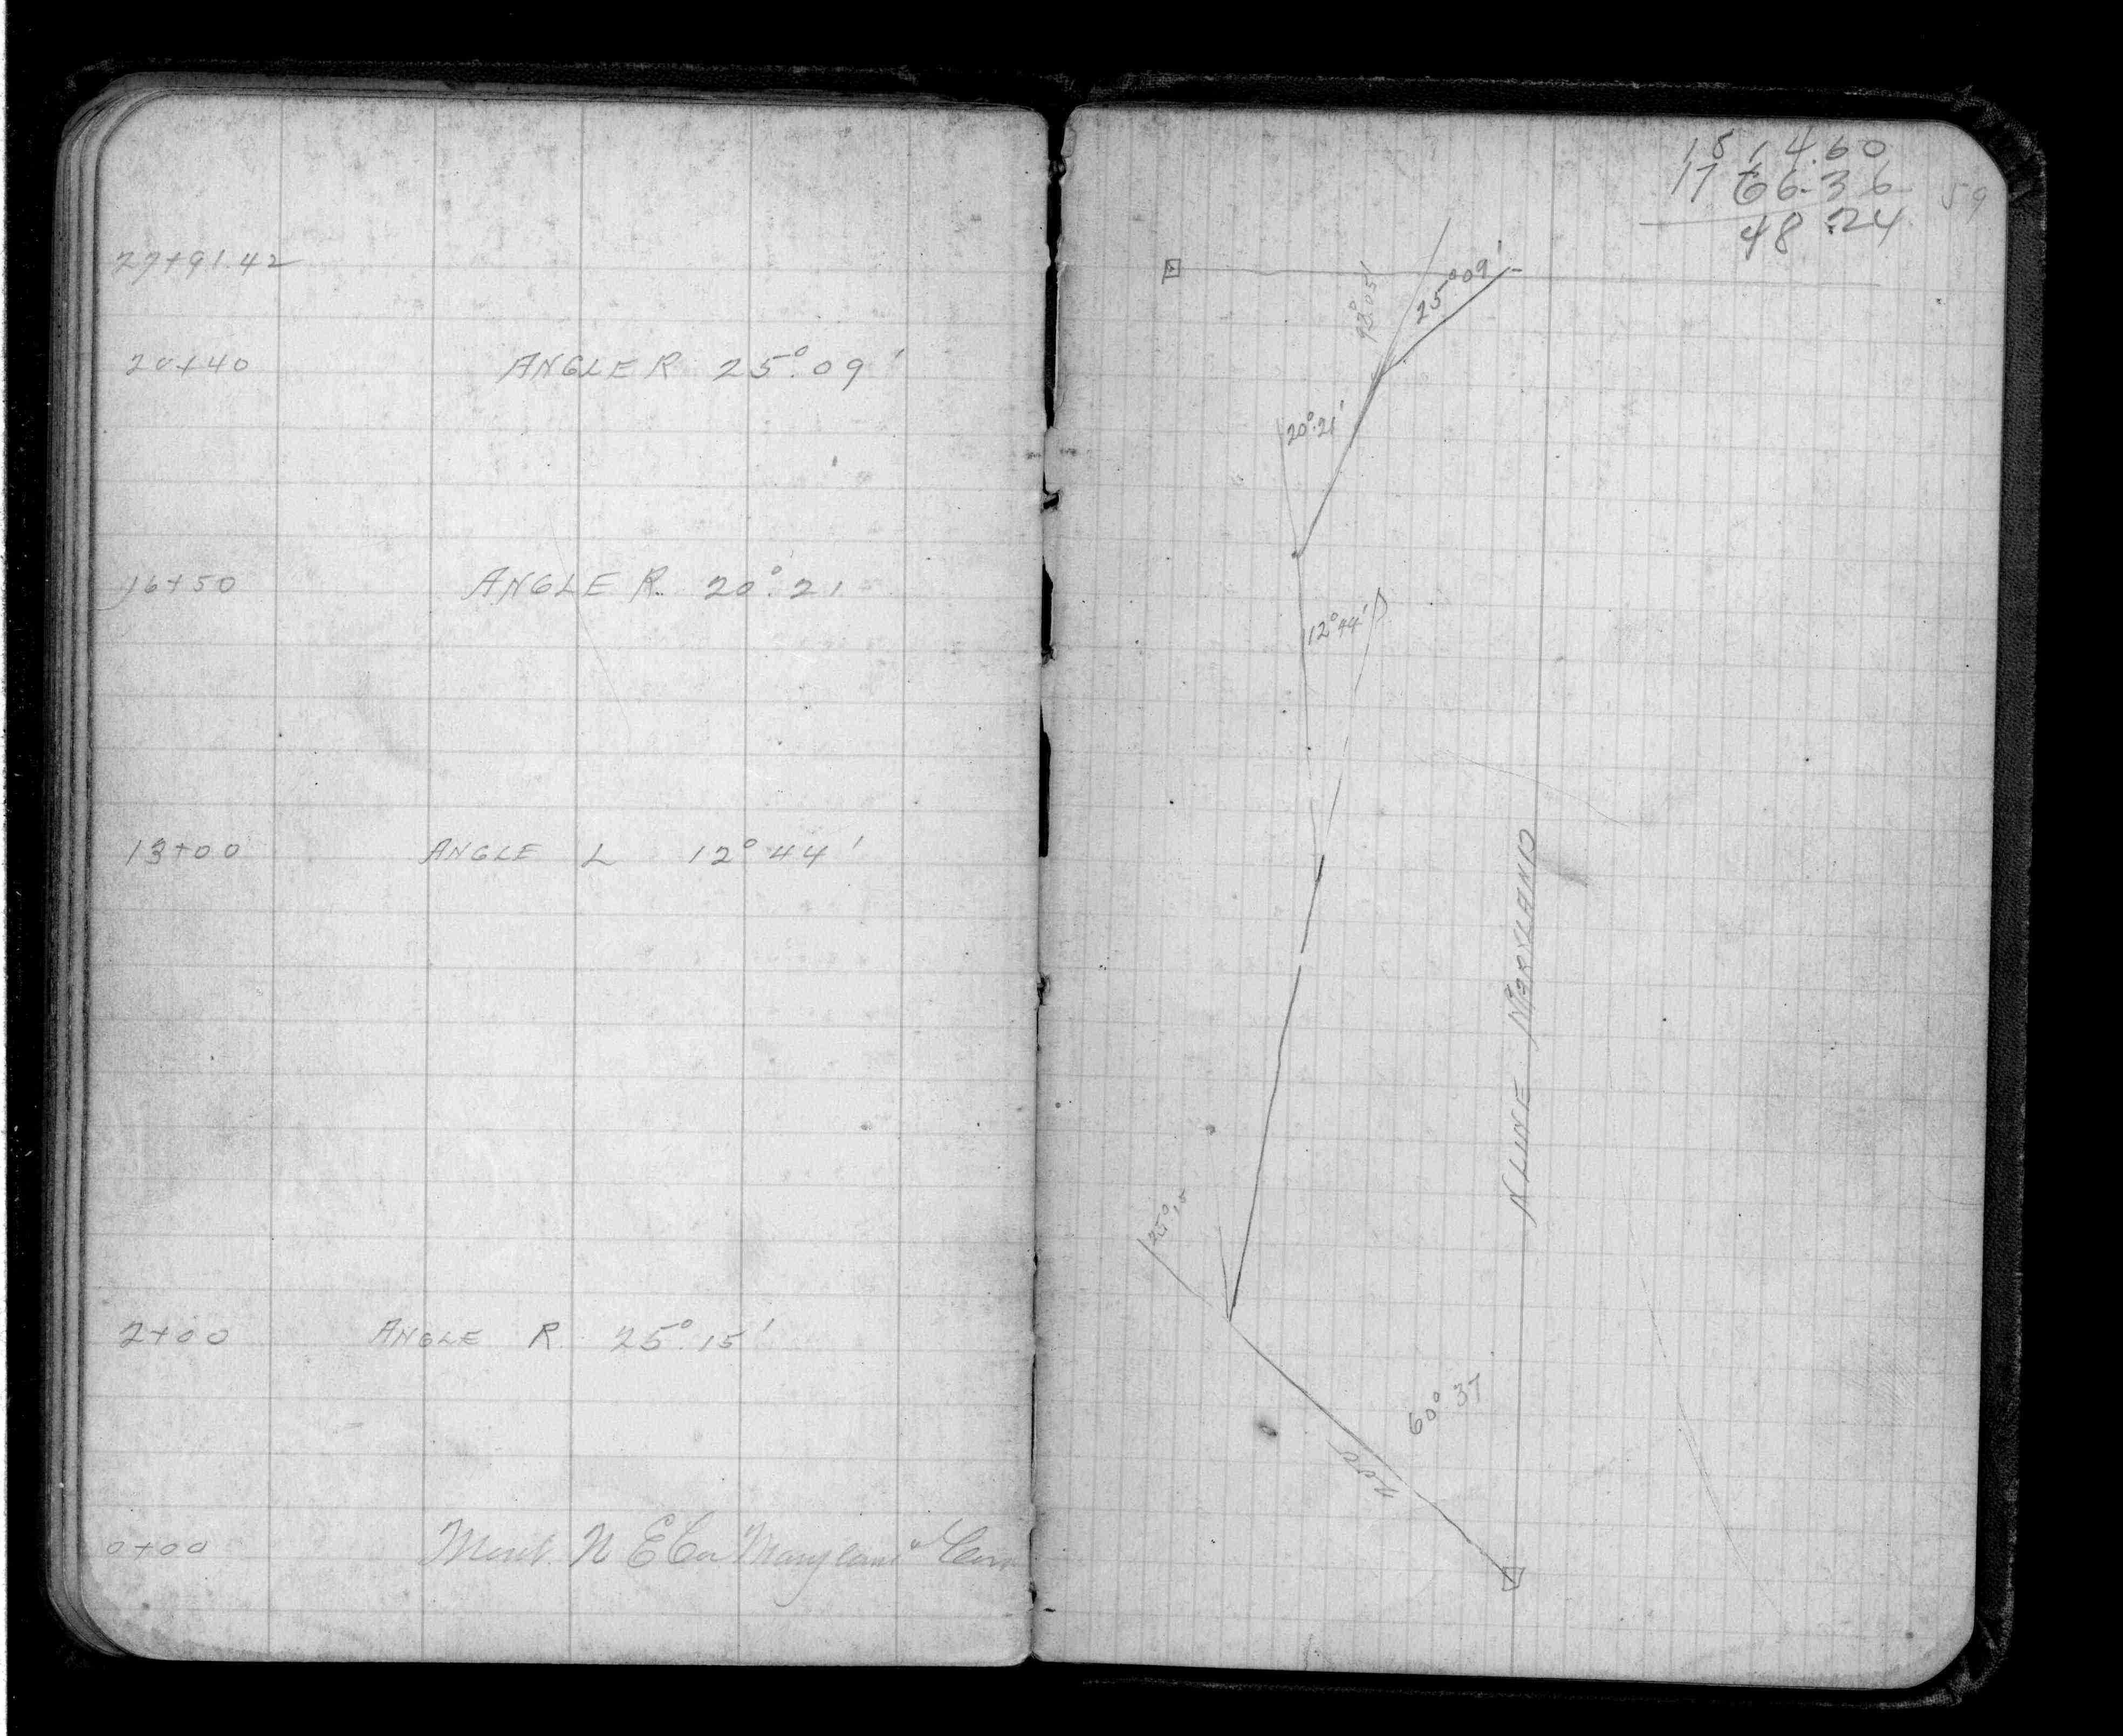 27+91.42
20+40 ANGLE R 25°.09'
16+50 ANGLE R. 20°.21
13+00 ANGLE L 12°44'
2+00 ANGLE R. 25°.15'
0+00 Mont. N E Cor Maryland
1814.60
1766.36
48.24
59
25°.09'
20°.21'
12°44'
N LINE MARYLAND
25°.15
60°37